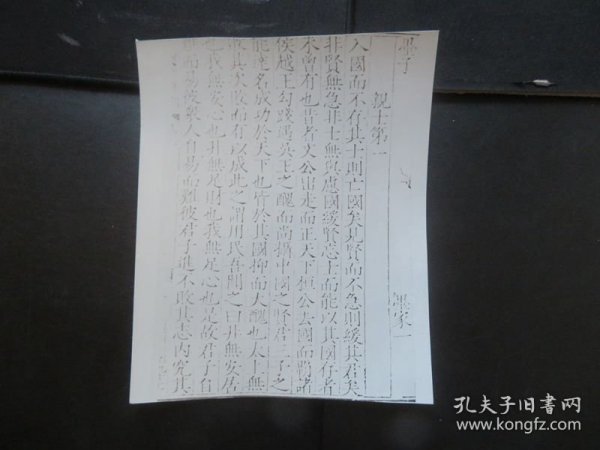 墨子
墨家一
親士第一
入國而不存其士則亡國矣見賢而不急則緩其君矣
非賢無急非士無與慮國緩賢忘士而能以其國存者
未曾有也昔者文公出走而正天下桓公去國而霸諸
侯越王勾踐遇吳王之醜而尚攝中國之賢君三子之
能達名成功於天下也皆於其國抑而大醜也太上無
敗其次敗而有以成此之謂用民吾聞之曰非無安居
也我無安心也非無足財也我無足心也是故君子自
難而易彼眾人自易而難彼君子進不敗其志內究其
孔夫子旧書网
www.kongfz.com